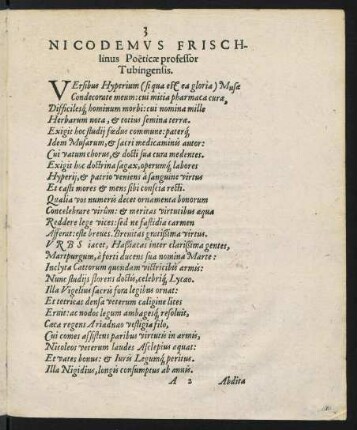 3
NICODEMVS FRISCH-
linus Poëticæ professor
Tubingensis.
VErsibus Hyperium (si qua est ea gloria) Musæ
Condecorate meum: cui mitia pharmaca cura,
Difficilesq́; hominum morbi: cui nomina mille
Herbarum nota, & totius semina terræ.
Exigit hoc studij fœdus commune: paterq́;
Idem Musarum, & sacri medicaminis autor:
Cui vatum chorus, & docti sua cura medentes.
Exigit hoc doctrina sagax, operumq́; labores
Hyperij, & patrio veniens à sanguine virtus
Et casti mores & mens sibi conscia recti.
Qualia voi numeris decet ornamenta bonorum
Concelebrare virûm: & meritas virtutibus aqua
Reddere lege vices: sed ne fastidia carmen
Afferat: este breues. Breuitas gratissima virtus.
VRBS iacet, Hassiacas inter clarissima gentes,
Martpurgum, à forti ducens sua nomina Marte:
Inclyta Cattorum quondam victricibus armis:
Nunc studijs florens doctis, celebriq́; Lycæo.
Illa Vigelius sacris fora legibus ornat:
Et tetricas densa veterum caligine lites
Eruit: ac nodos legum ambagesq́; resoluit,
Cæca regens Ariadnæo vestigia filo,
Cui comes assistens paribus virtutis in armis,
Nicoleos veterum laudes Asclepius æquat:
Et vates bonus: & Iuris Legumq́; peritus.
Illa Nigidius, longis consumptus ab annis.
A 2 Abdita